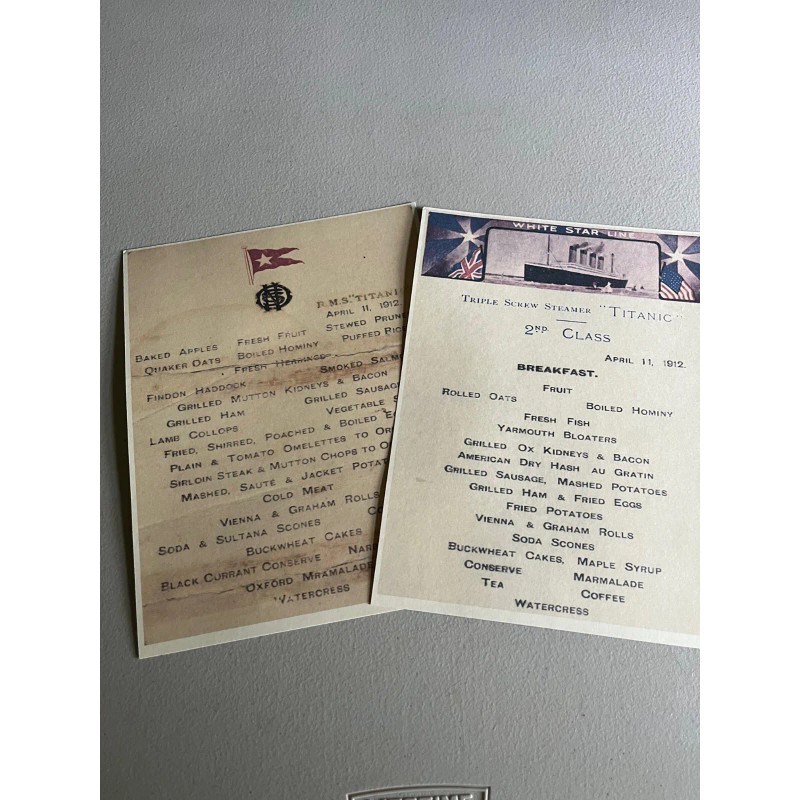 R.M.S. "TITANIC
APRIL 11, 1912.
BAKED APPLES FRESH FRUIT STEWED PRUN
QUAKER OATS BOILED HOMINY PUFFED RIC
FRESH HERRINGS
FINDON HADDOCK SMOKED SALM
GRILLED MUTTON KIDNEYS & BACON
GRILLED HAM GRILLED SAUSAG
LAMB COLLOPS VEGETABLE S
FRIED, SHIRRED, POACHED & BOILED E
PLAIN & TOMATO OMELETTES TO OR
SIRLOIN STEAK & MUTTON CHOPS TO O
MASHED, SAUTÉ & JACKET POTAT
COLD MEAT
VIENNA & GRAHAM ROLLS
SODA & SULTANA SCONES CO
BUCKWHEAT CAKES
BLACK CURRANT CONSERVE NAR
OXFORD MRAMALADE
WATERCRESS
WHITE STAR LINE
TRIPLE SCREW STEAMER "TITANIC"
2ND CLASS
APRIL 11, 1912.
BREAKFAST.
FRUIT
ROLLED OATS BOILED HOMINY
FRESH FISH
YARMOUTH BLOATERS
GRILLED OX KIDNEYS & BACON
AMERICAN DRY HASH AU GRATIN
GRILLED SAUSAGE, MASHED POTATOES
GRILLED HAM & FRIED EGGS
FRIED POTATOES
VIENNA & GRAHAM ROLLS
SODA SCONES
BUCKWHEAT CAKES, MAPLE SYRUP
CONSERVE MARMALADE
TEA COFFEE
WATERCRESS